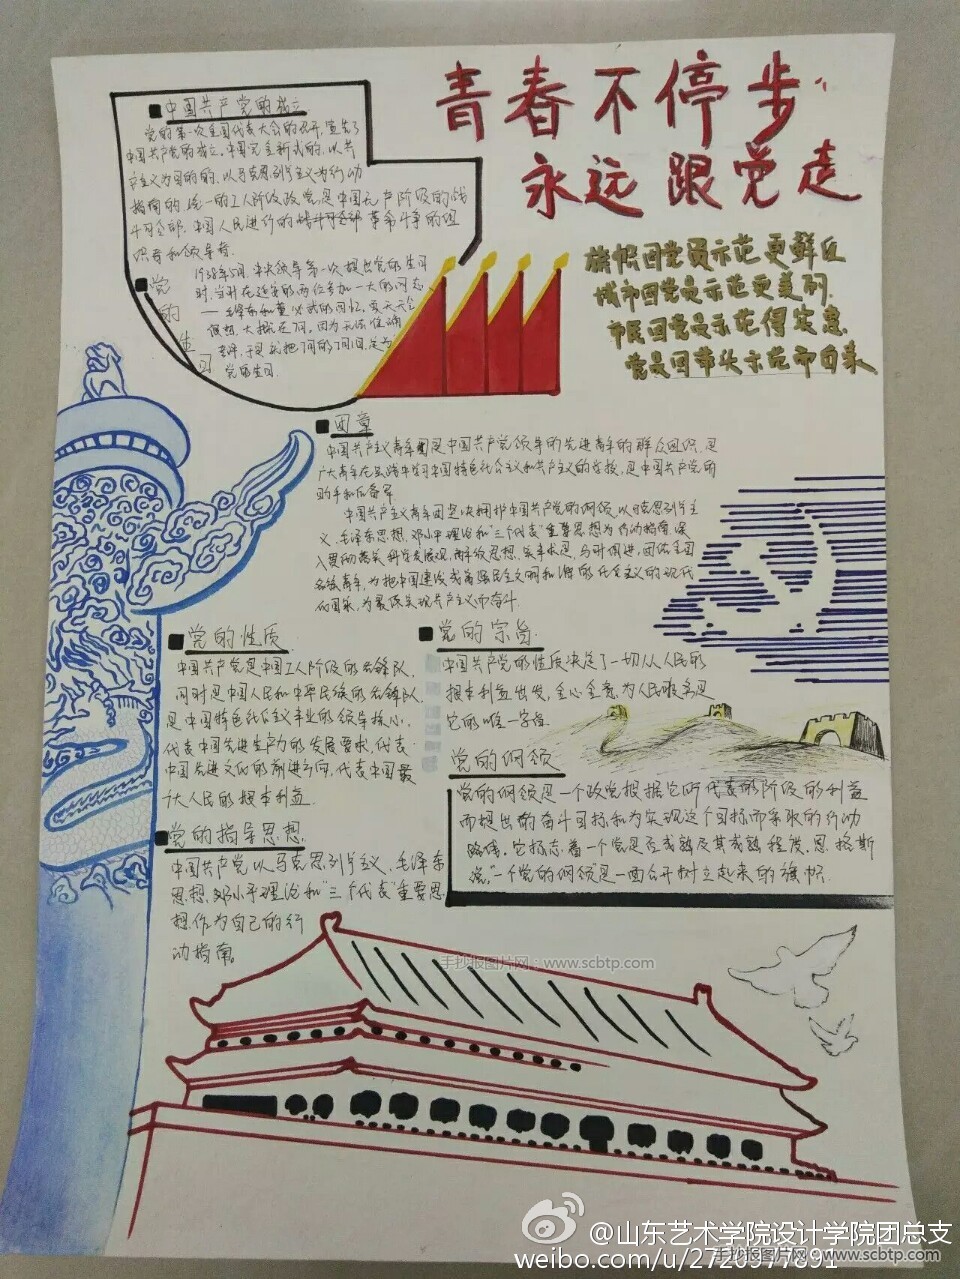 青春不停步
永远跟党走
中国共产党的成立
党的第一次全国代表大会的召开,宣告了
中国共产党的成立。中国完全新式的,以共
产主义为目的的,以马克思列宁主义为行动
指南的,统一的工人阶级政党,是中国无产阶级的战
斗司令部,中国人民进行的革命斗争的组
织者和领导者
党的生日
1938年5月,中央领导第一次提出党的生日
党的生日
旗帜因党员示范更鲜红
城市因党员示范更美丽
市民因党员示范得实惠
党员因带头示范而自豪
团章
中国共产主义青年团是中国共产党领导的先进青年的群众组织,是
广大青年在实践中学习中国特色社会主义和共产主义的学校,是中国共产党的
助手和后备军
中国共产主义青年团坚决拥护中国共产党的纲领,以马克思列宁主
义、毛泽东思想、邓小平理论和"三个代表"重要思想为行动指南,深
入贯彻落实科学发展观,解放思想,实事求是,与时俱进,团结全国
各族青年,为把中国建设成富强民主文明和谐的社会主义的现代
化国家,为最终实现共产主义而奋斗
党的性质
中国共产党是中国工人阶级的先锋队,
同时是中国人民和中华民族的先锋队,
是中国特色社会主义事业的领导核心,
代表中国先进生产力的发展要求,代表
中国先进文化的前进方向,代表中国最
广大人民的根本利益
党的宗旨
中国共产党的性质决定了一切从人民的
根本利益出发,全心全意为人民服务是
它的唯一宗旨
党的纲领
党的纲领是一个政党根据它所代表的阶级的利益
而提出的奋斗目标和为实现这个目标而采取的行动
路线。它标志着一个党是否成熟及其成熟程度。恩格斯
说,"一个党的纲领是一面公开树立起来的旗帜
党的指导思想
中国共产党以马克思列宁主义、毛泽东
思想、邓小平理论和"三个代表"重要思
想作为自己的行
动指南。
手抄报图片网:www.scbtp.com
@山东艺术学院设计学院团总支
手抄报图片网:www.scbtp.com